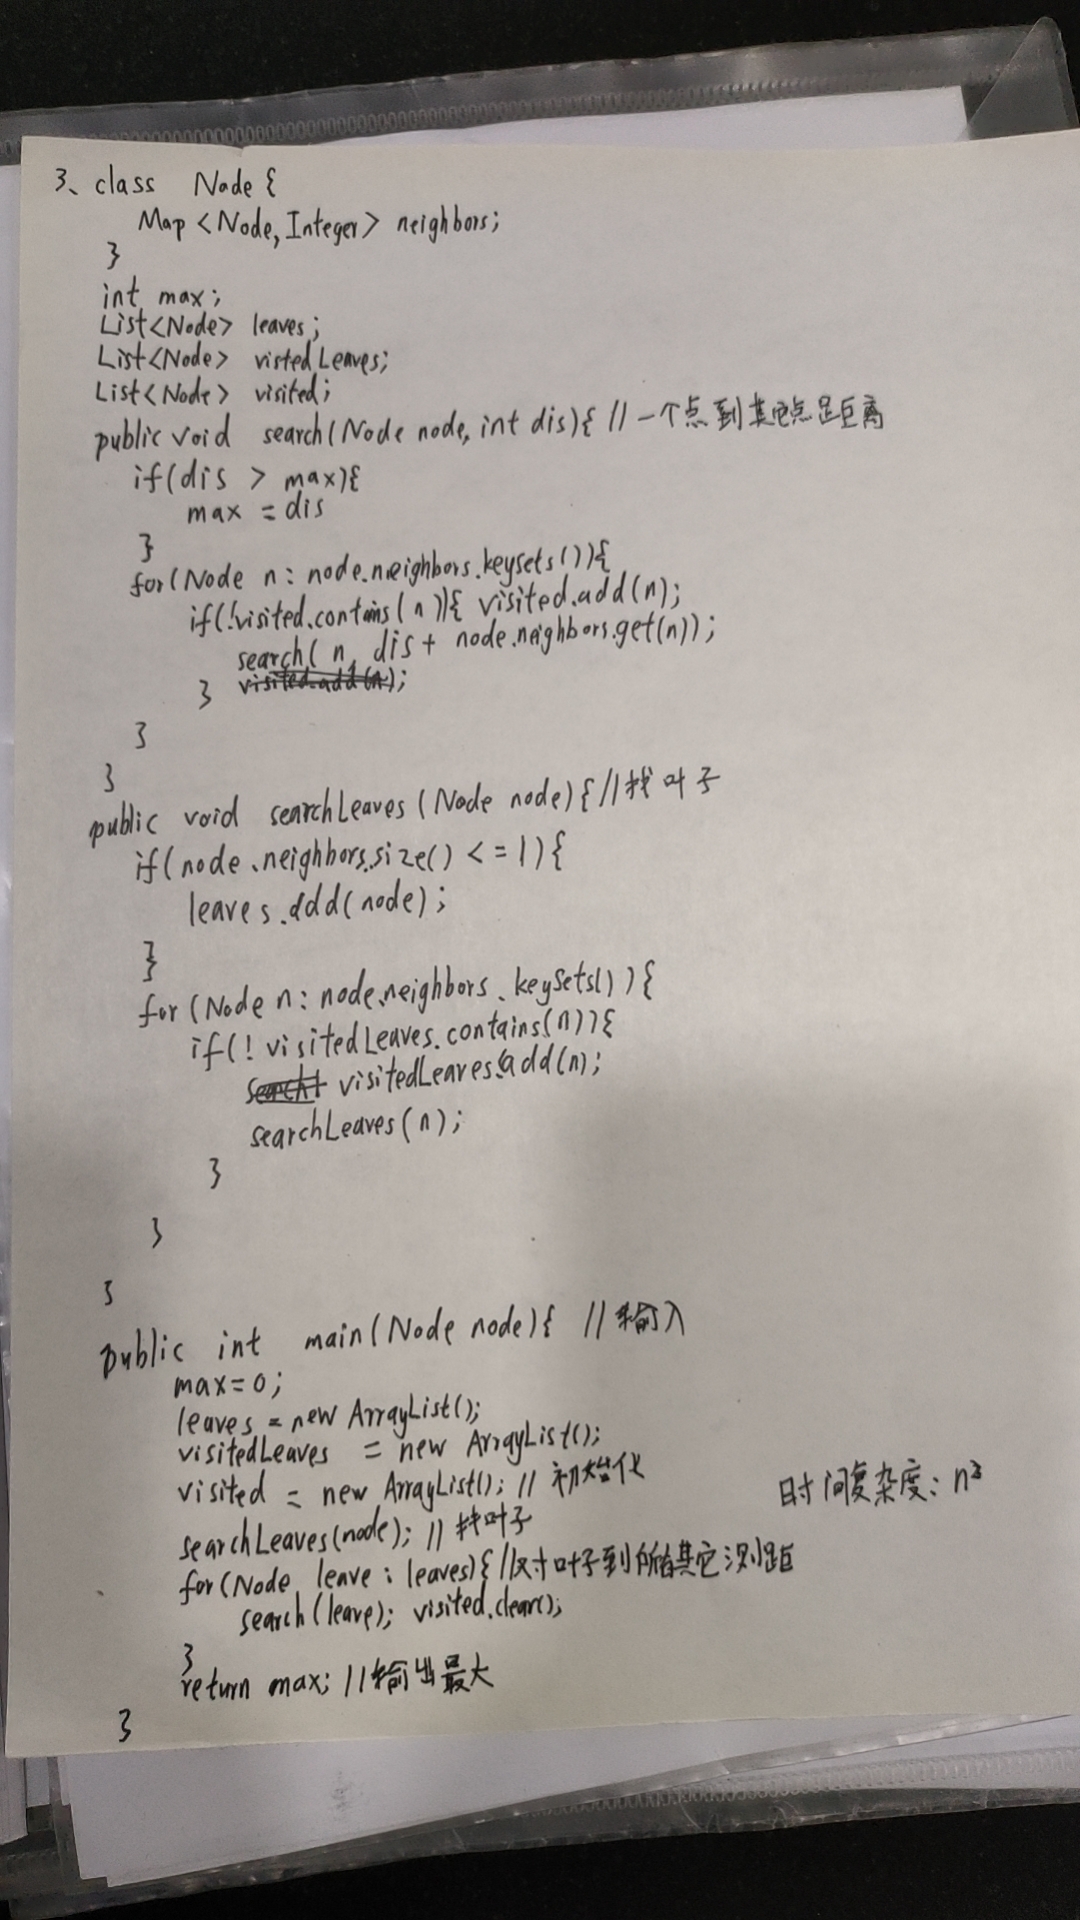 3、class Node {
Map <Node, Integer> neighbors;
}
int max;
List<Node> leaves;
List<Node> visted Leaves;
List<Node> visited;
public void search(Node node, int dis){ //一个点到其它点距离
if(dis > max){
max = dis
}
for(Node n: node.neighbors.keysets()){
if(!visited.contains(n)){ visited.add(n);
search( n, dis + node.neighbors.get(n));
} visited.add(n);
}
}
public void searchLeaves (Node node){ //找叶子
if(node.neighbors.size() <=1){
leaves.ddd(node);
}
for (Node n: node.neighbors.keySets()){
if(! visitedLeaves.contains(n)){
search( visitedLeaves.add(n);
searchLeaves(n);
}
}
}
public int main(Node node){ //输入
max=0;
leaves = new ArrayList();
visitedLeaves = new ArrayList();
visited = new ArrayList(); //初始化
时间复杂度: n²
searchLeaves(node); //找叶子
for(Node leave : leaves){ //对叶子到所有其它测距
search(leave); visited.clear();
}
return max; //输出最大
}